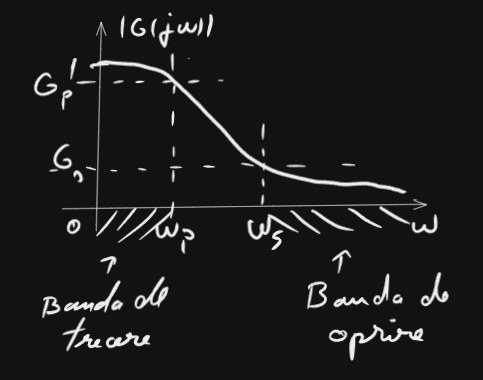 |G(jω)|
1
Gp
Gs
0
ωp
ωs
ω
Banda de
trecere
Banda de
oprire